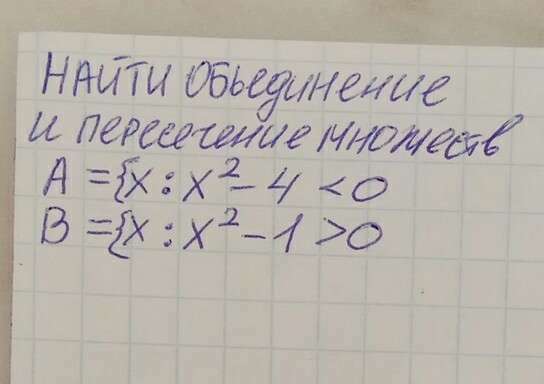 НАЙТИ ОБЬЕДИНЕНИЕ
И ПЕРЕСЕЧЕНИЕ МНОЖЕСТВ
A = {x : x² - 4 < 0
B = {x : x² - 1 > 0